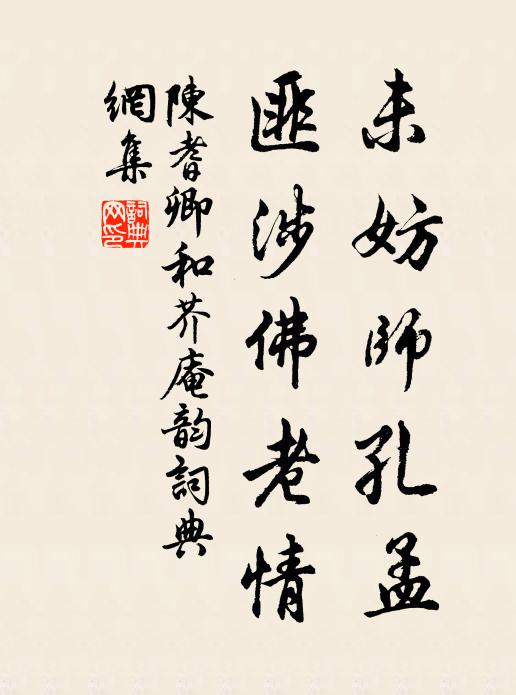 未妨師孔孟
匪涉佛老情
陳耆卿和芥庵韵詞典
網集
詞典
网印